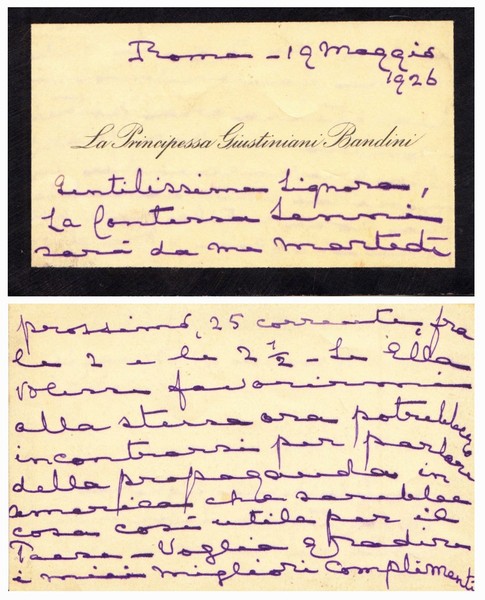 Roma - 19 Maggio
1926
La Principessa Giustiniani Bandini
Gentilissima Signora,
La Contessa
sarà da me martedì
prossimo, 25 corrente, fra
le 2 e le 2 1/2 - Se Ella
volesse favorirmi
alla stessa ora potrebbero
incontrarsi per parlare
della propaganda in
America che sarebbe
cosa così utile per il
Paese - Voglia gradire
i miei migliori complimenti